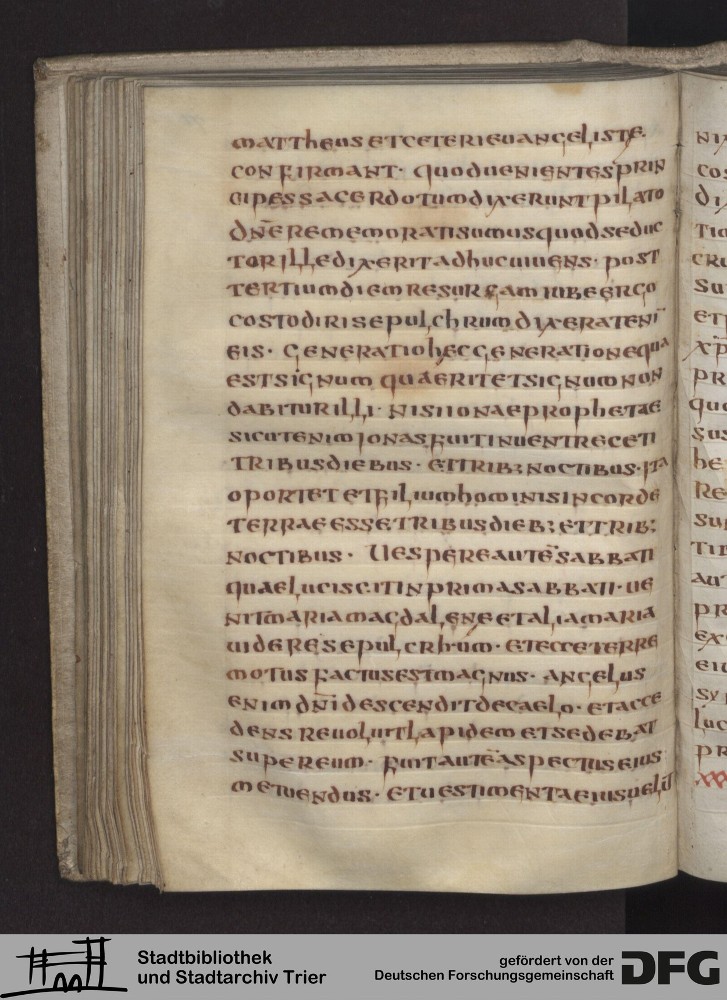 MATTHEUS ET CETERI EUANGELISTE
CONFIRMANT · QUOD UENIENTES PRIN
CIPES SACERDOTUM DIXERUNT PILATO
DÑE REMEMORATI SUMUS QUOD SEDUC
TOR ILLE DIXERIT ADHUC UIUENS · POST
TERTIUM DIEM RESURGAM IUBE ERGO
COSTODIRI SEPULCHRUM DIXERAT ENĪ
EIS · GENERATIO HEC GENERATIONEQUA
EST SIGNUM QUAERIT ET SIGNUM NON
DABITUR ILLI · NISI IONAE PROPHETAE
SICUT ENIM IONAS FUIT IN UENTRE CETI
TRIBUS DIEBUS · ET TRIB; NOCTIBUS · ITA
OPORTET ET FILIUM HOMINIS IN CORDE
TERRAE ESSE TRIBUS DIEB; ET TRIB;
NOCTIBUS · UESPERE AUTĒ SABBATI
QUAE LUCISCIT IN PRIMA SABBATI · UE
NIT MARIA MAGDALENE ET ALIA MARIA
UIDERE SEPULCRHUM · ET ECCE TERRE
MOTUS FACTUS EST MAGNUS · ANGELUS
ENIM DÑI DESCENDIT DE CAELO · ET ACCE
DENS REUOLUIT LAPIDEM ET SEDEBAT
SUPER EUM · FUIT AUTĒ ASPECTUS EIUS
METUENDUS · ET UESTIMENTA EIUS UELŪT
NI
COS
DI
TIO
CRU
SU
ET
XP
PR
QUO
SUS
HE
RE
SU
TIB
AU
PR
EX
EIU
SY
LUC
PR
XX
Stadtbibliothek
und Stadtarchiv Trier
gefördert von der
Deutschen Forschungsgemeinschaft
DFG